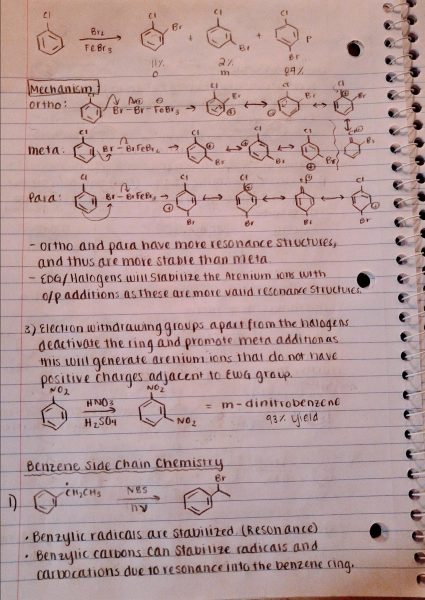 Cl Cl Br Cl Cl
Br₂
FeBr₃
+ +
Br Br
11% 2%
o m
Mechanism
ortho: Br–Br–FeBr₃
meta: Br–Br
para: Br–Br
- ortho and para have more resonance structures,
and thus are more stable than meta
- EDG/Halogens will stabilize the Arenium ions with
o/p additions as these are more valid resonance structures.
3) Electron withdrawing groups apart from the halogens
deactivate the ring and promote meta addition as
this will generate arenium ions that do not have
positive charges adjacent to EWG group.
NO₂ HNO₃ NO₂
H₂SO₄ NO₂
= m-dinitrobenzene
93% yield
Benzene Side Chain Chemistry
1) CH₂CH₃ NBS Br
hν
• Benzylic radicals are stabilized. (Resonance)
• Benzylic carbons can stabilize radicals and
carbocations due to resonance into the benzene ring.